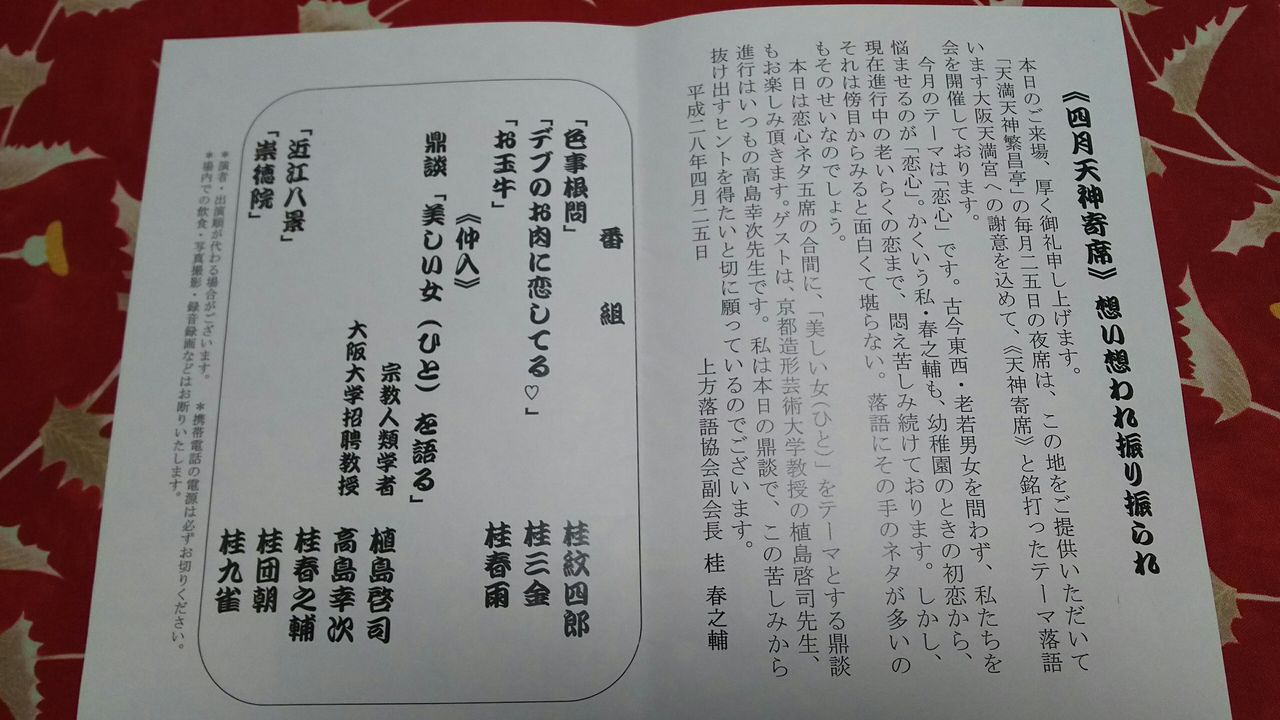 《四月天神寄席》 想い想われ振り振られ
本日のご来場、厚く御礼申し上げます。
「天満天神繁昌亭」の毎月二五日の夜席は、この地をご提供いただいて
います大阪天満宮への謝意を込めて、《天神寄席》と銘打ったテーマ落語
会を開催しております。
今月のテーマは「恋心」です。古今東西・老若男女を問わず、私たちを
悩ませるのが「恋心」。かくいう私・春之輔も、幼稚園のときの初恋から、
現在進行中の老いらくの恋まで、悶え苦しみ続けております。しかし、
それは傍目からみると面白くて堪らない。落語にその手のネタが多いの
もそのせいなのでしょう。
本日は恋心ネタ五席の合間に、「美しい女(ひと)」をテーマとする鼎談
もお楽しみ頂きます。ゲストは、京都造形芸術大学教授の植島啓司先生、
進行はいつもの高島幸次先生です。私は本日の鼎談で、この苦しみから
抜け出すヒントを得たいと切に願っているのでございます。
平成二八年四月二五日 上方落語協会副会長 桂 春之輔
番 組
「色事根問」 桂紋四郎
「デブのお肉に恋してる♡」 桂三金
「お玉牛」 桂春雨
《仲入》
鼎談 「美しい女(ひと)を語る」
宗教人類学者 植島啓司
大阪大学招聘教授 高島幸次
桂春之輔
「近江八景」 桂団朝
「崇徳院」 桂九雀
*演者・出演順が代わる場合がございます。 *携帯電話の電源は必ずお切りください。
*場内での飲食・写真撮影・録音録画などはお断りいたします。